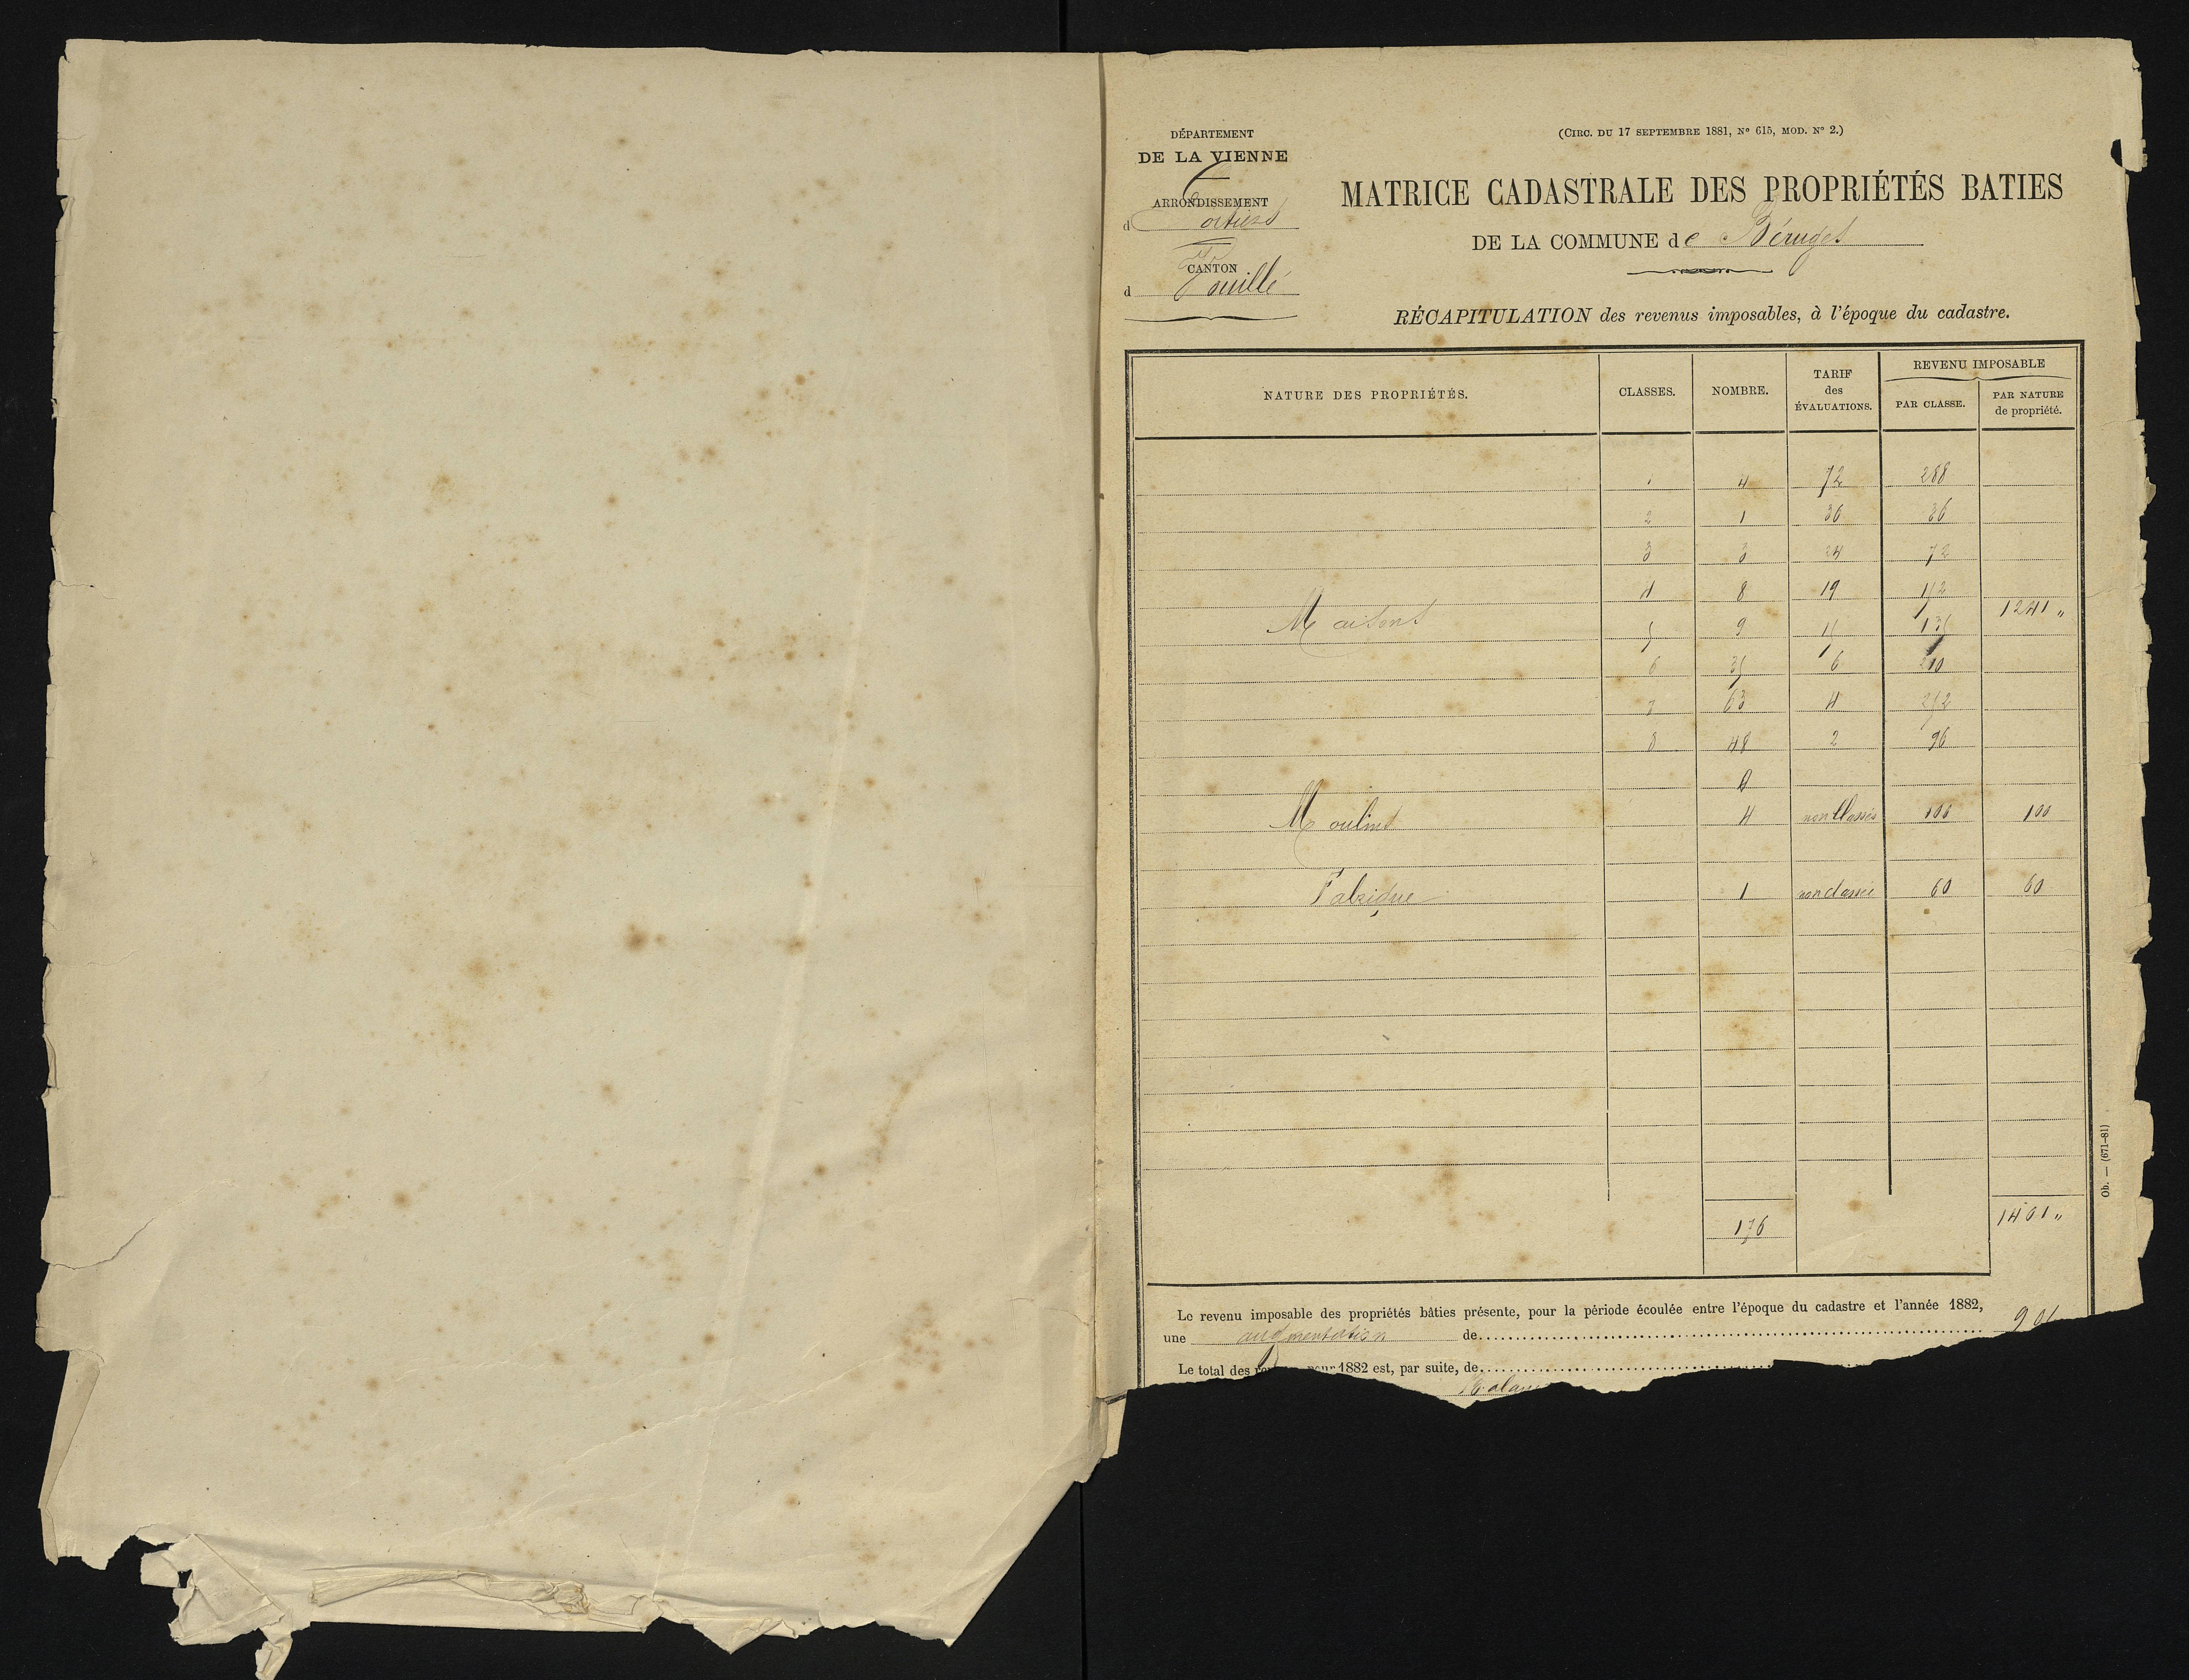 DÉPARTEMENT
DE LA VIENNE
ARRONDISSEMENT
d Poitiers
CANTON
d Vouillé
(CIRC. DU 17 SEPTEMBRE 1881, N° 615, MOD. N° 2.)
MATRICE CADASTRALE DES PROPRIÉTÉS BATIES
DE LA COMMUNE de Béruges
RÉCAPITULATION des revenus imposables, à l'époque du cadastre.
NATURE DES PROPRIÉTÉS. CLASSES. NOMBRE. TARIF des ÉVALUATIONS. REVENU IMPOSABLE PAR CLASSE. PAR NATURE de propriété.
1 4 72 288
2 1 36 36
3 3 24 72
4 8 19 152
Maisons 1241 "
5 9 15 135
6 35 6 210
7 63 4 252
8 48 2 96
Moulins 4 non Classés 100 100
Fabrique 1 non classée 60 60
176 1401 "
Le revenu imposable des propriétés bâties présente, pour la période écoulée entre l'époque du cadastre et l'année 1882,
une augmentation de 901
Le total des pour 1882 est, par suite, de
Ob. — (671-81)